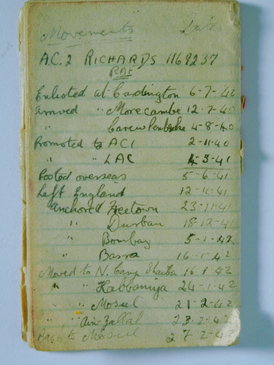 Movements Dates
A.C.2 RICHARDS 1169237
RAF
Enlisted at Cardington 6-7-40
Arrived Morecambe 12-7-40
" Carew 4-8-40
Promoted to AC1 2-11-40
" " LAC 4-3-41
Posted overseas 5-6-41
Left England 12-11-41
Anchored Freetown 23-11-41
" Durban 18-12-41
" Bombay 5-1-42
" Basra 16-1-42
Moved to N. Camp Shaiba 16-1-42
" " Habbaniya 24-1-42
" " Mosul 21-2-42
" " Ain Zallal 23-2-42
Mosul 27-2-42